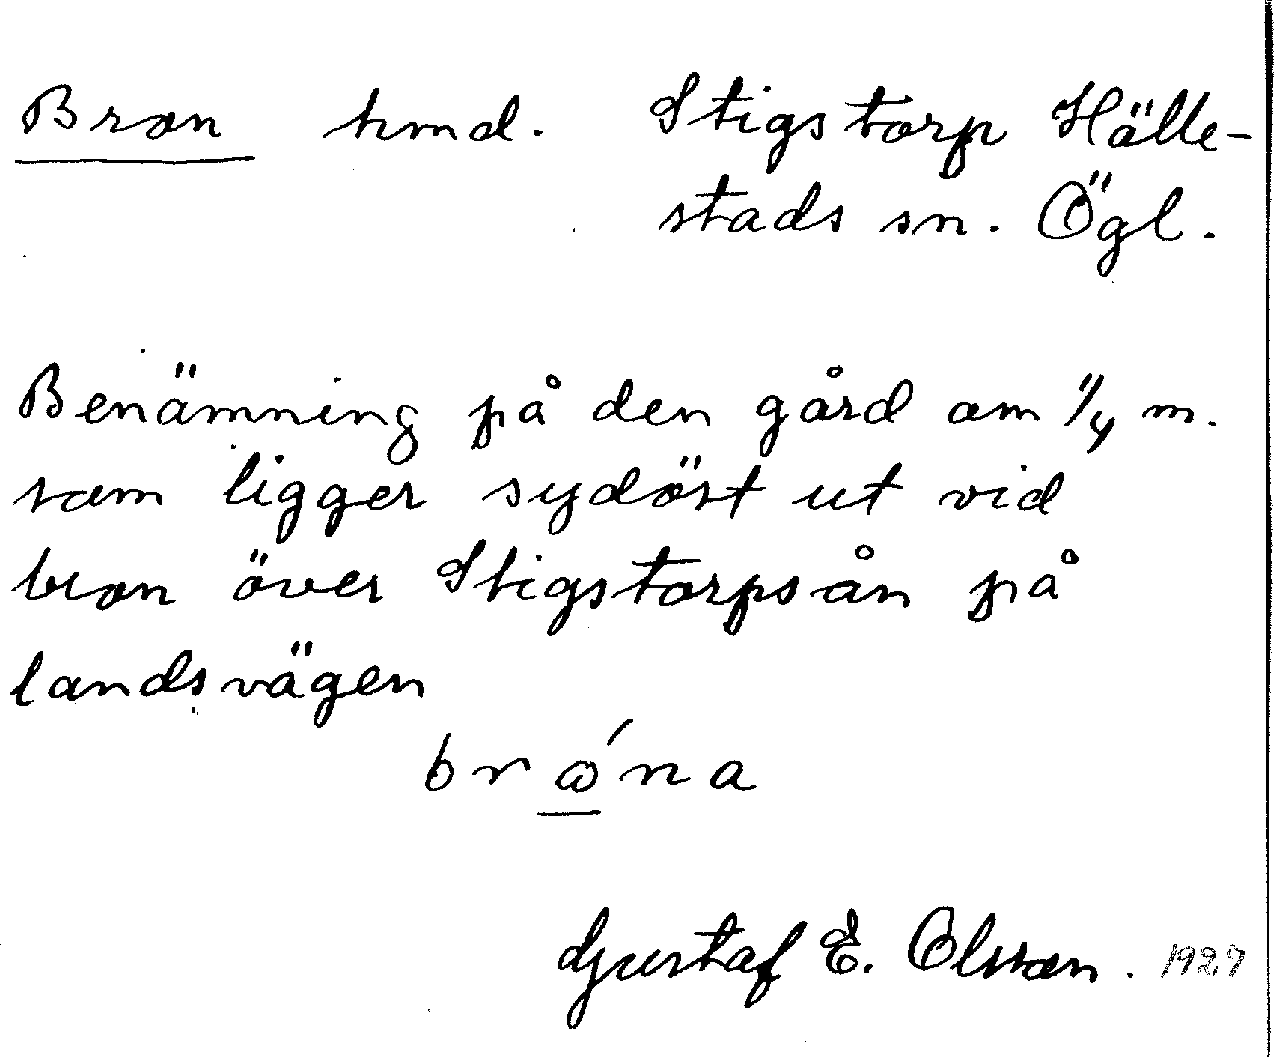 Bron hmd. Stigstorp Hälle-
stads sn. Ögl.
Benämning på den gård om 1/4 m.
som ligger sydöst ut vid
bron över Stigstorpsån på
landsvägen
brǫ́na
Gustaf E. Olsson. 1927